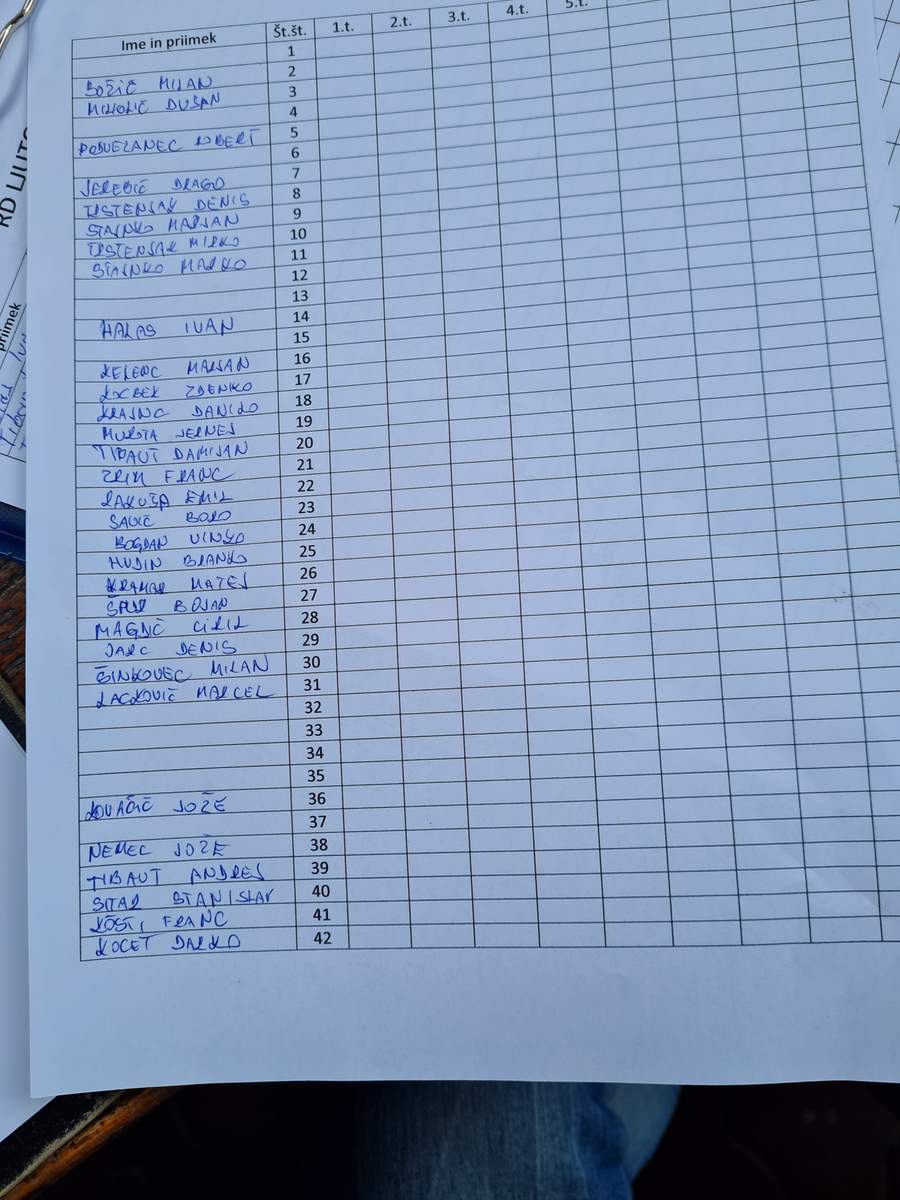 Ime in priimek Št.št. 1.t. 2.t. 3.t. 4.t. 5.t.
1
BOŽIČ MILAN 2
MIHOLIČ DUŠAN 3
4
PODVEZANEC ROBERT 5
6
JEREBIČ DRAGO 7
TRSTENJAK DENIS 8
STAJNKO MARJAN 9
TRSTENJAK MIRKO 10
STAJNKO MARKO 11
12
13
HALAS IVAN 14
15
KELENC MARJAN 16
KOCBEK ZDENKO 17
KRAJNC DANILO 18
JERNEJ 19
TIBAUT DAMIJAN 20
ZRIM FRANC 21
RAKUŠA EMIL 22
SAVIČ BORO 23
BOGDAN VINKO 24
HUDIN BRANKO 25
KRAMAR MATEJ 26
ŠPUR BOJAN 27
MAGDIČ CIRIL 28
JARC DENIS 29
ŠINKOVEC MILAN 30
LACKOVIČ MARCEL 31
32
33
34
35
KOVAČIČ JOŽE 36
37
NEMEC JOŽE 38
TIBAUT ANDREJ 39
SITAR STANISLAV 40
KOSI, FRANC 41
KOCET DARKO 42
RD LJUTO
priimek